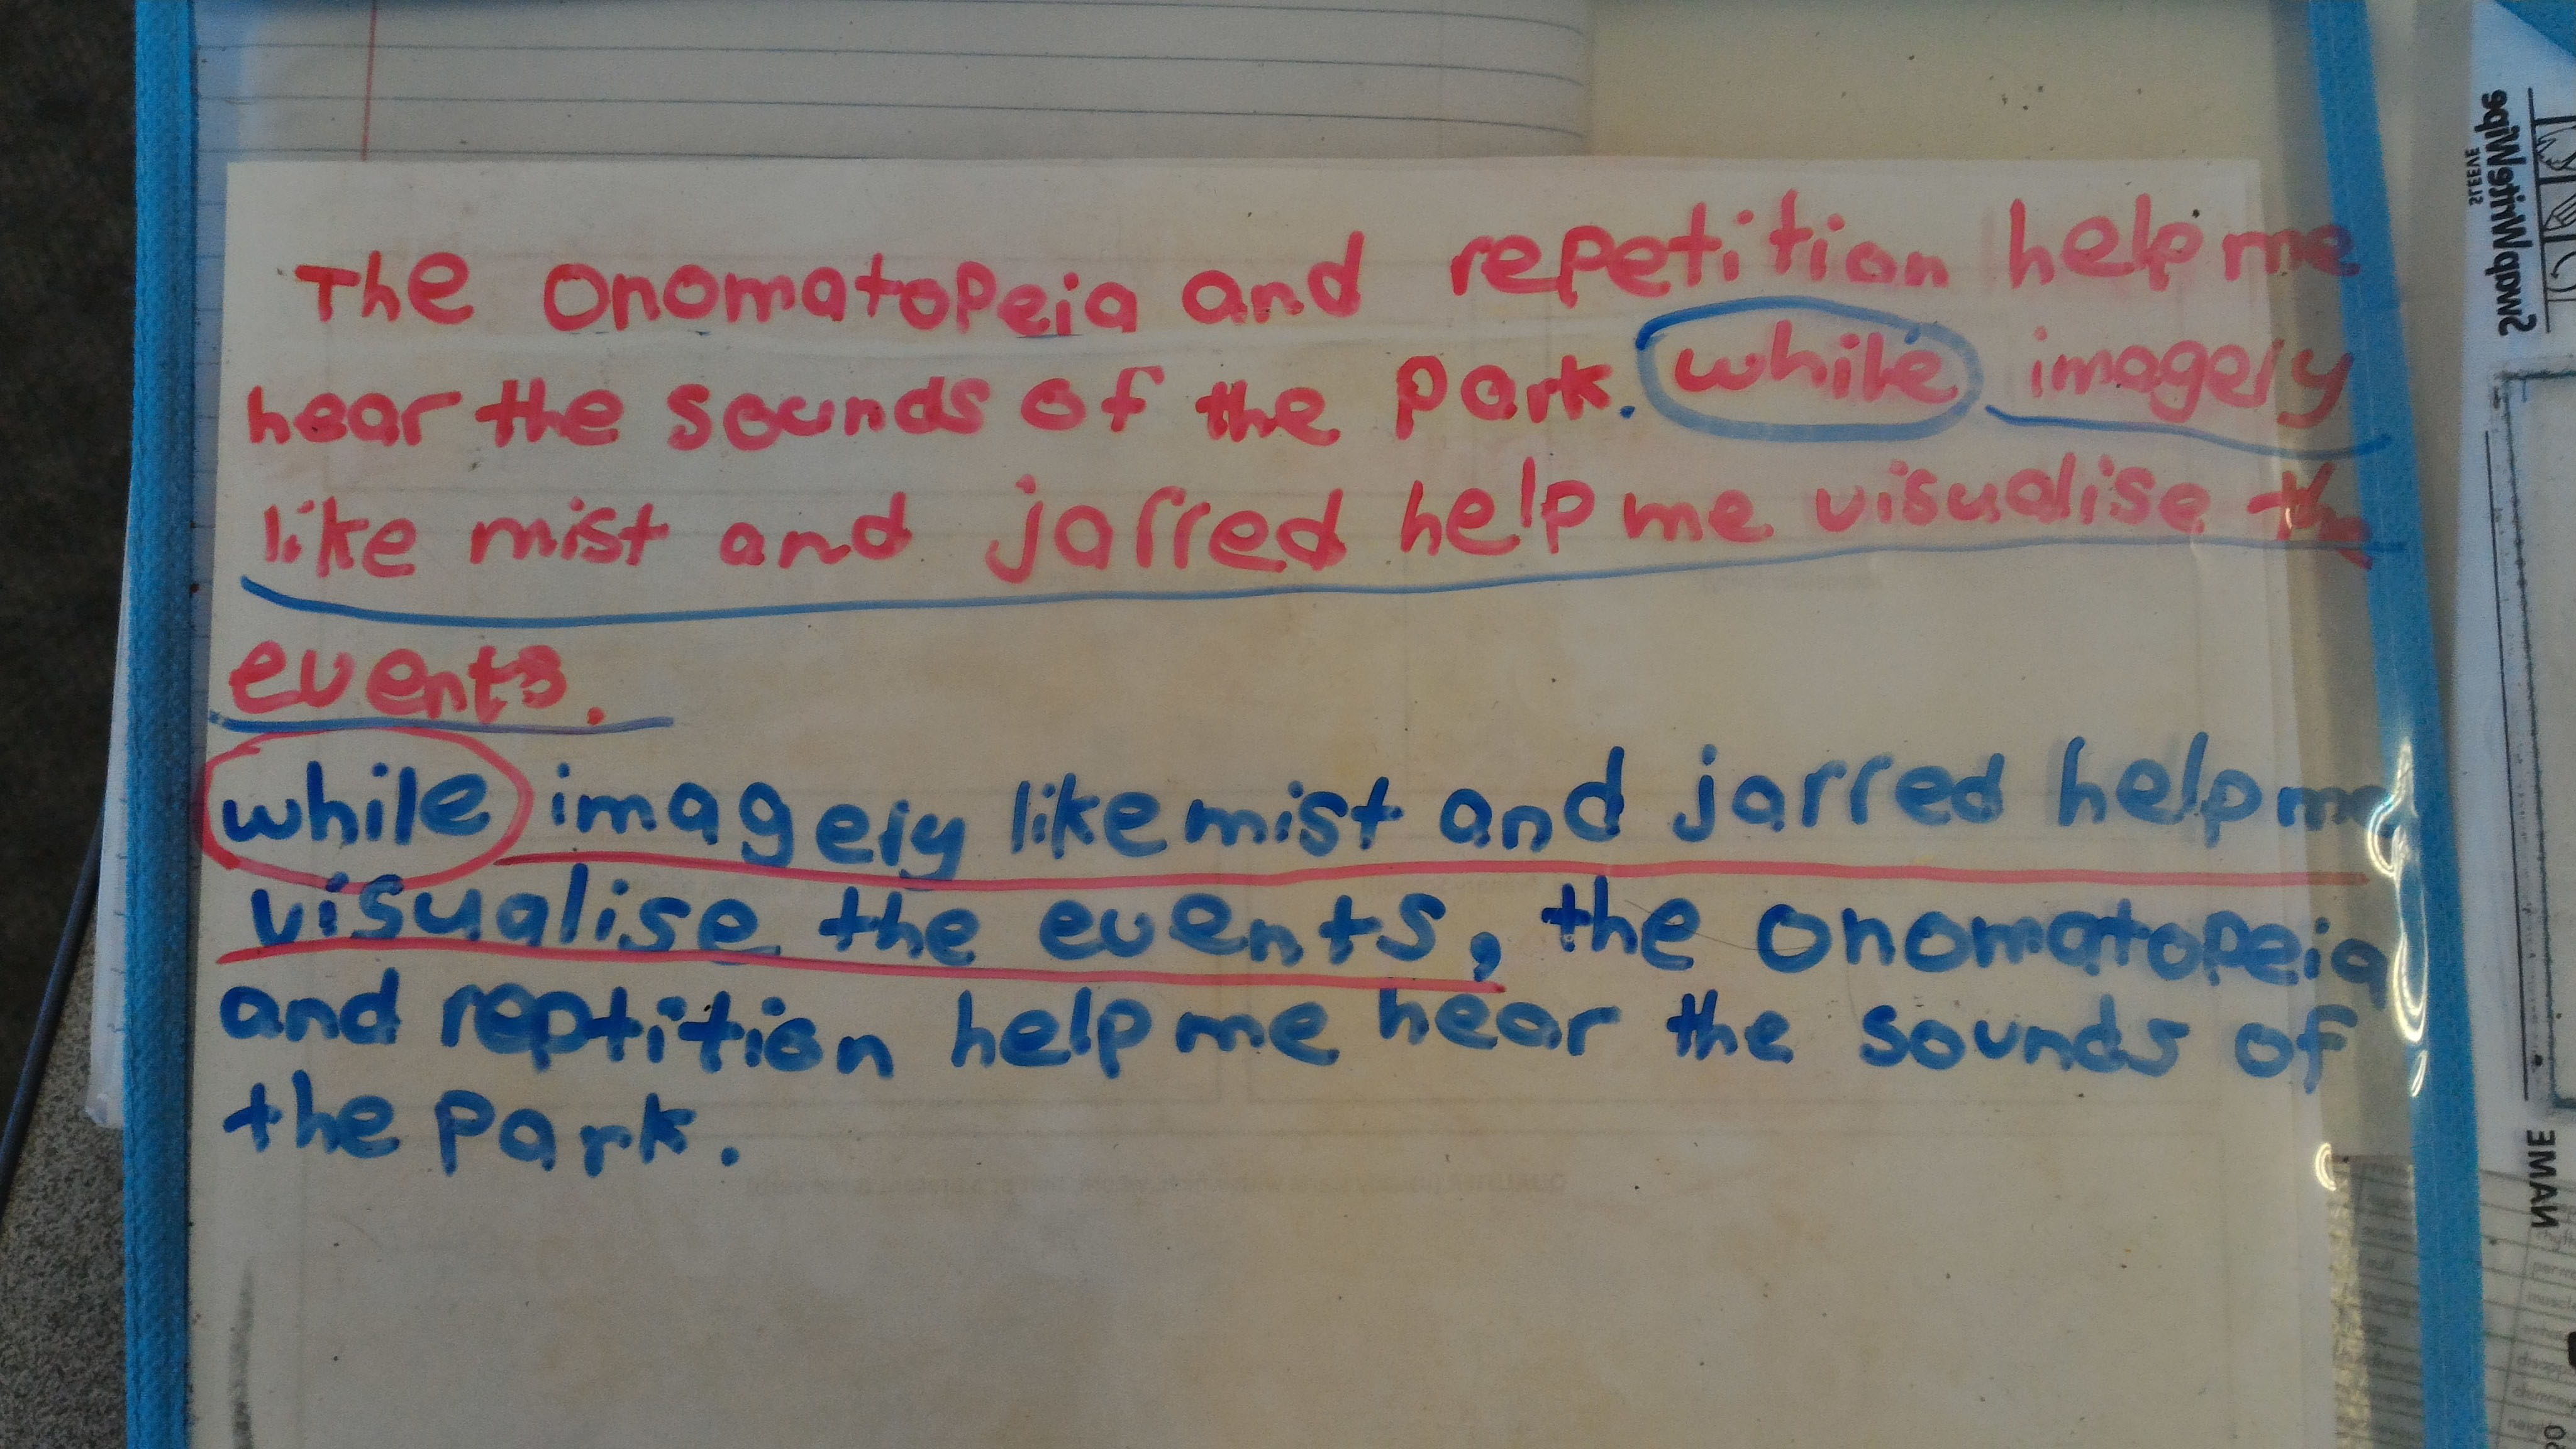 The onomatopeia and repetition help me
hear the sounds of the park. while imagery
like mist and jarred help me visualise the
events.
while imagery like mist and jarred help me
visualise the events, the onomatopeia
and reptition help me hear the sounds of
the park.
NAME